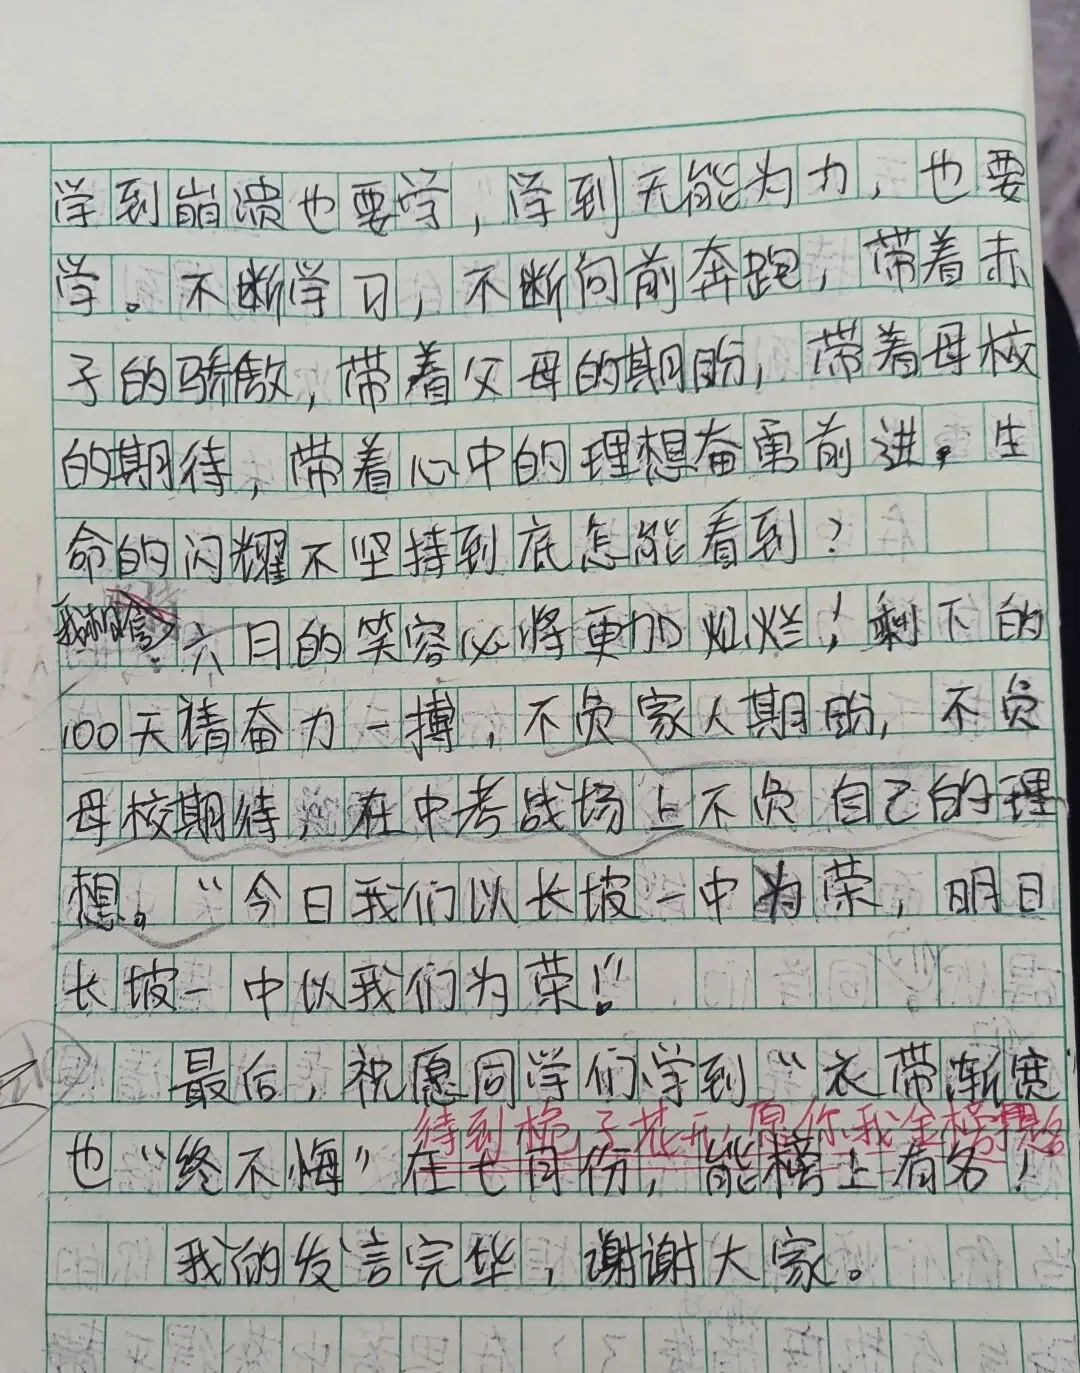 学到崩溃也要学，学到无能为力，也要
学。不断学习，不断向前奔跑，带着赤
子的骄傲，带着父母的期盼，带着母校
的期待，带着心中的理想奋勇前进。生
命的闪耀不坚持到底怎能看到？
我相信六月的笑容必将更加灿烂！剩下的
100天请奋力一搏，不负家人期盼，不负
母校期待，在中考战场上不负自己的理
想。“今日我们以长坡一中为荣，明日
长坡一中以我们为荣！”
最后，祝愿同学们学到“衣带渐宽
待到栀子花开，愿你我金榜题名
也“终不悔”在七月份，能榜上有名！
我的发言完毕，谢谢大家。